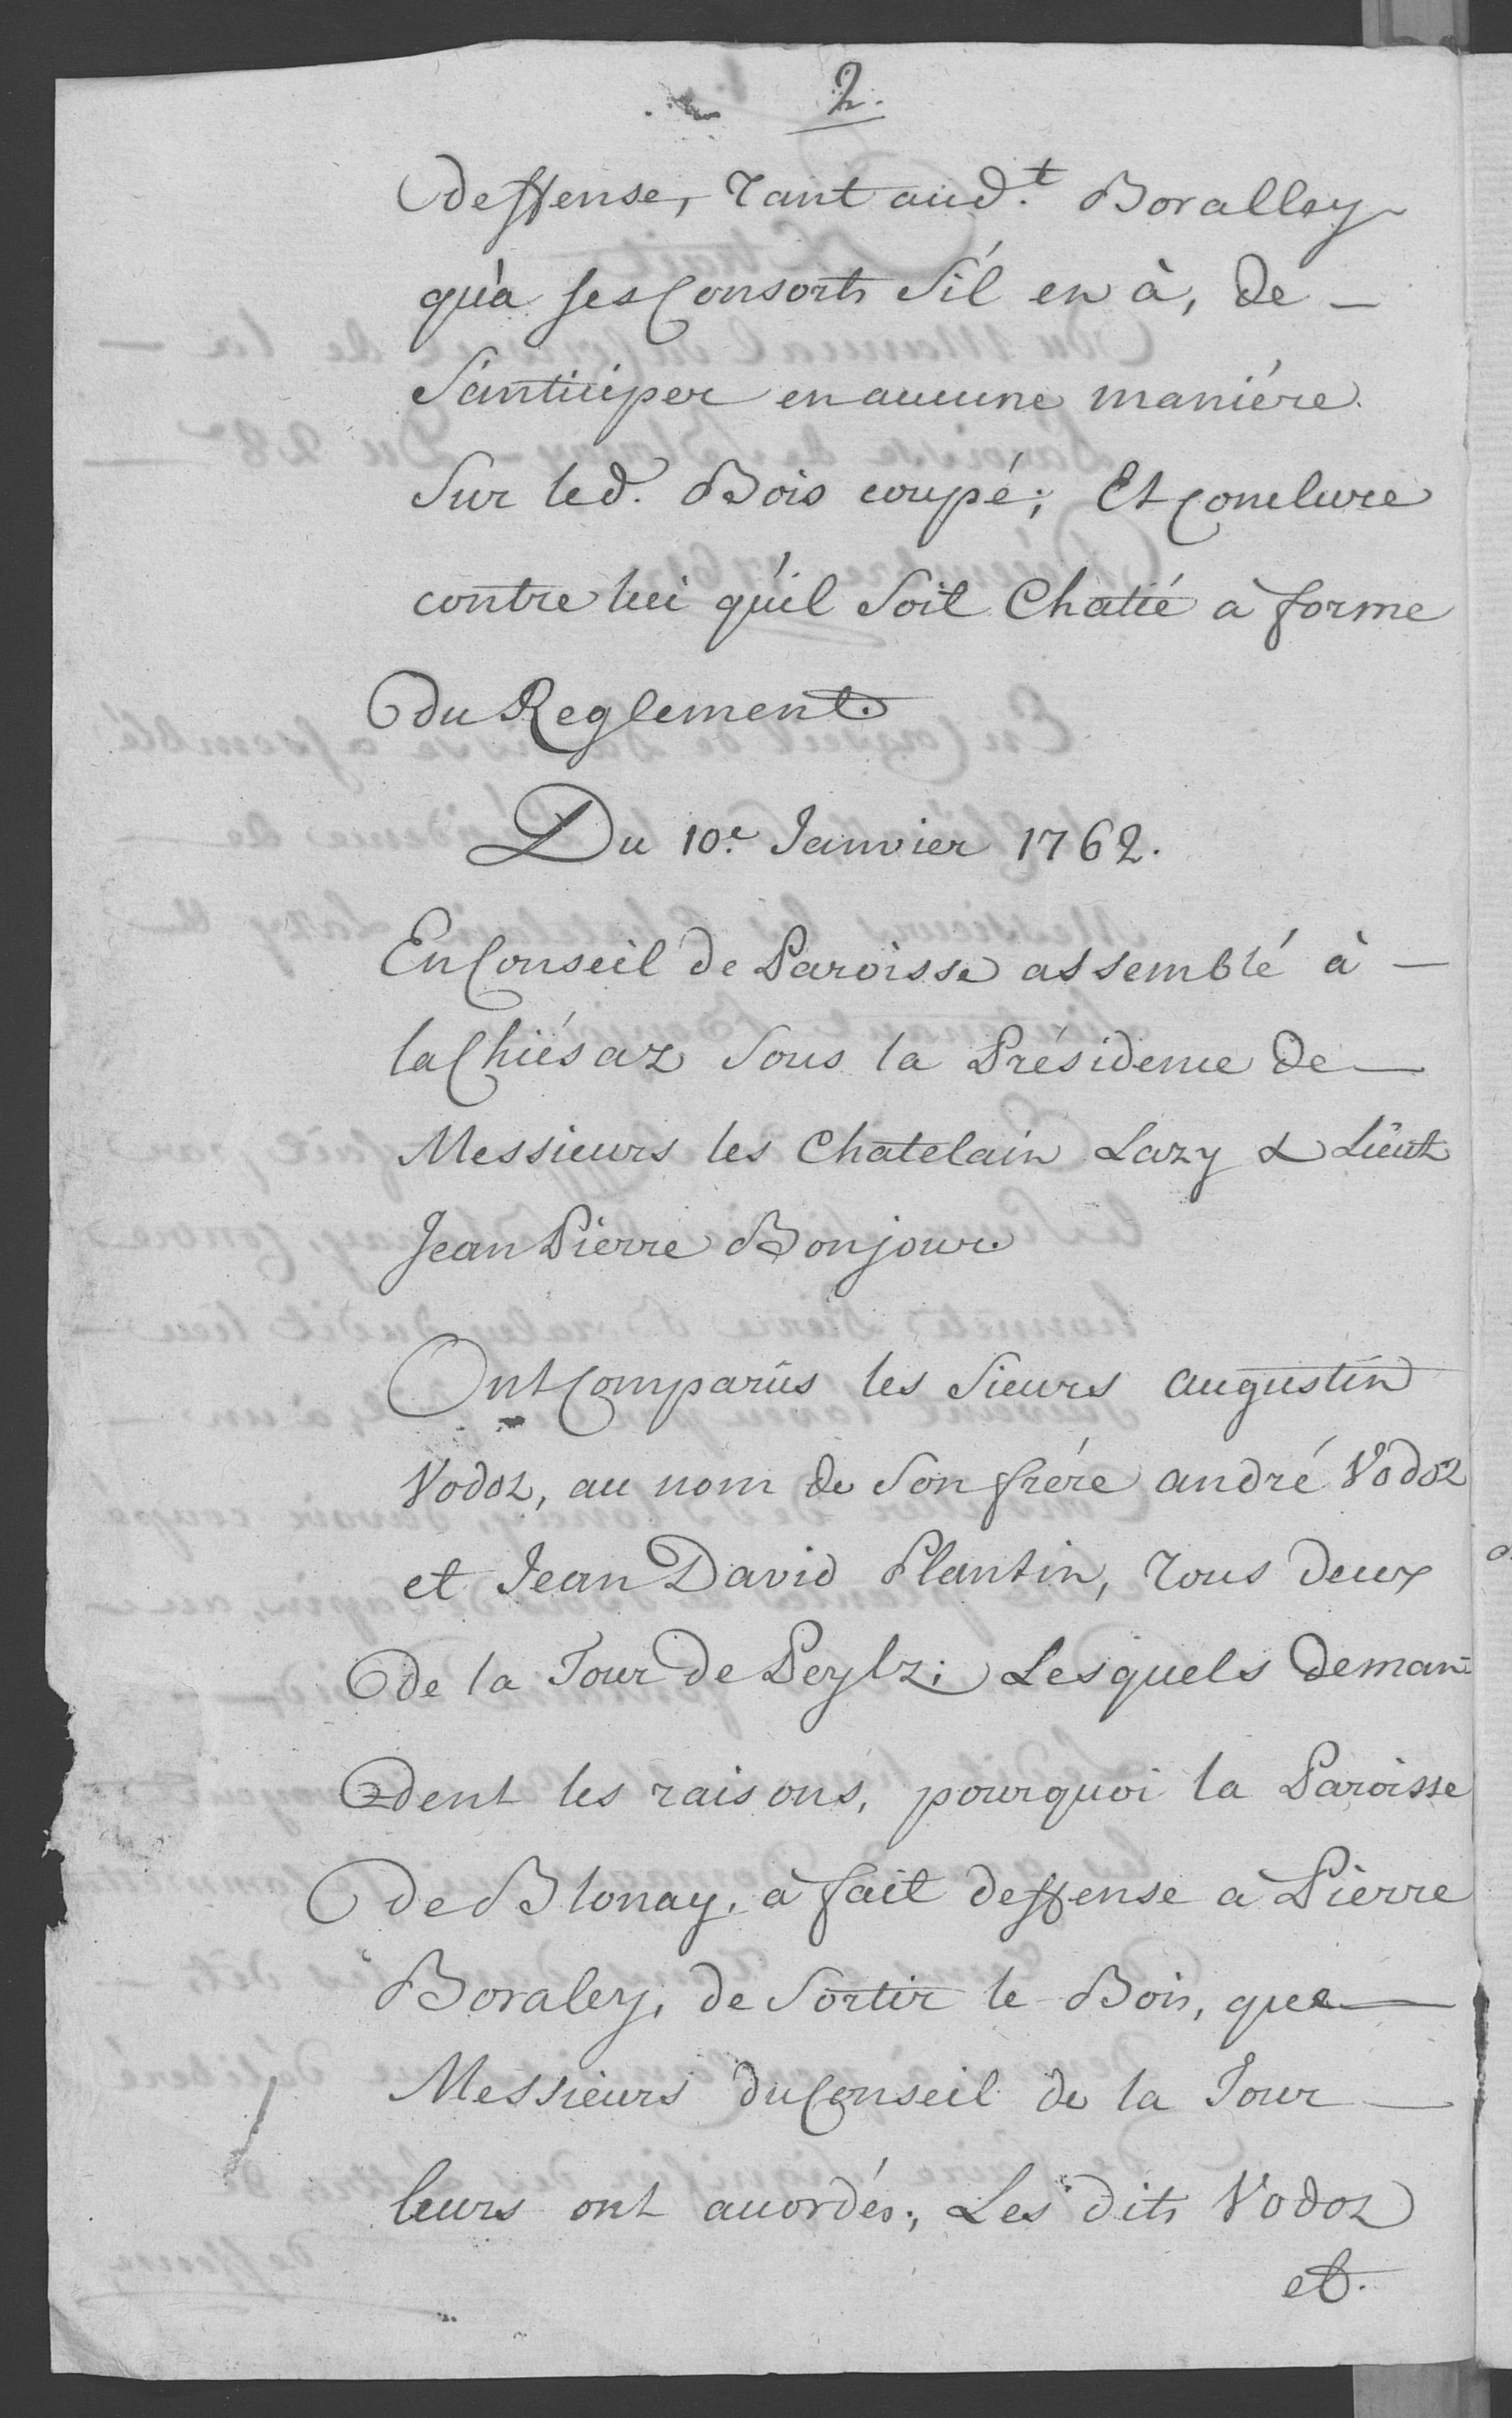 2.
deffense, Tant aud.t Boralley
qu'a ses Consorts S'il en à, de —
S'anticiper en aucune maniére
Sur led. Bois coupé; Et Conclure
contre lui qu'il Soit Chatié à forme
du Reglement.
Du 10.e Janvier 1762.
En Conseil de Paroisse assemblé à —
la Chiésaz Sous la Présidence de —
Messieurs les Chatelain Lazy & Lieut
Jean Pierre Bonjour.
Ont Comparûs les Sieurs augustin
Vodoz, au nom de Son frére andré Vodoz
et Jean David Plantin, Tous deux
de la Tour de Peylz; Lesquels deman=
=dent les raisons, pourquoi la Paroisse
de Blonay, à fait deffense a Pierre
Boraley, de Sortir le Bois, que —
Messieurs du Conseil de la Tour —
leurs ont accordés; Les dits Vodoz
et.